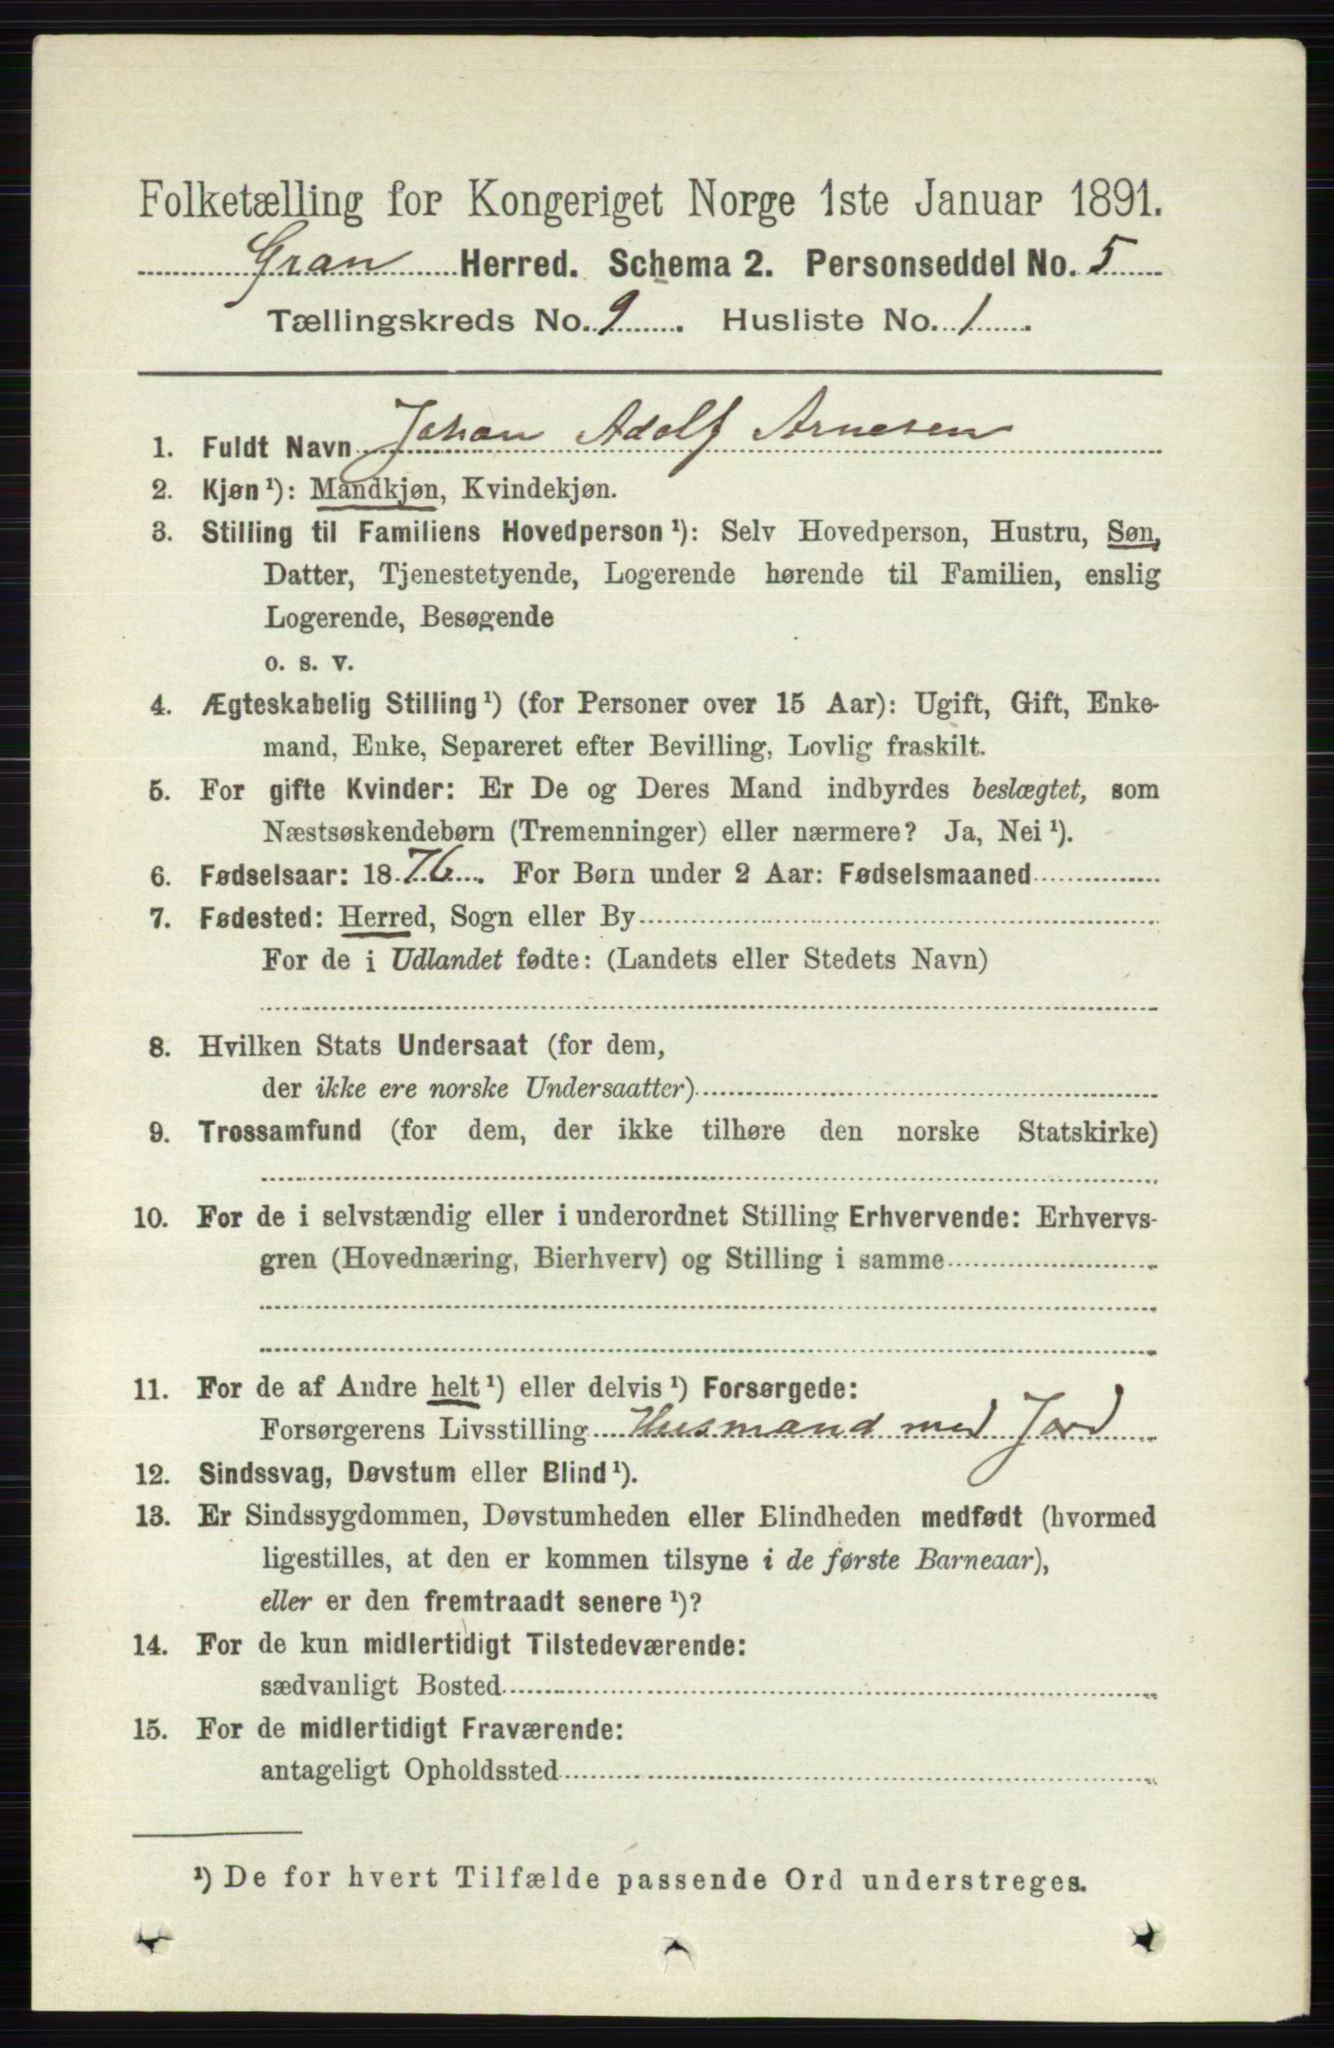 Folketælling for Kongeriget Norge 1ste Januar 1891.
Gran Herred. Schema 2. Personseddel No. 5
Tællingskreds No. 9. Husliste No. 1.
1. Fuldt Navn Johan Adolf Arnesen
2. Kjøn¹): Mandkjøn, Kvindekjøn.
3. Stilling til Familiens Hovedperson¹): Selv Hovedperson, Hustru, Søn,
Datter, Tjenestetyende, Logerende hørende til Familien, enslig
Logerende, Besøgende
o. s. v.
4. Ægteskabelig Stilling¹) (for Personer over 15 Aar): Ugift, Gift, Enke-
mand, Enke, Separeret efter Bevilling, Lovlig fraskilt.
5. For gifte Kvinder: Er De og Deres Mand indbyrdes beslægtet, som
Næstsøskendebørn (Tremenninger) eller nærmere? Ja, Nei¹).
6. Fødselsaar: 1876. For Børn under 2 Aar: Fødselsmaaned
7. Fødested: Herred, Sogn eller By
For de i Udlandet fødte: (Landets eller Stedets Navn)
8. Hvilken Stats Undersaat (for dem,
der ikke ere norske Undersaatter)
9. Trossamfund (for dem, der ikke tilhøre den norske Statskirke)
10. For de i selvstændig eller i underordnet Stilling Erhvervende: Erhvervs-
gren (Hovednæring, Bierhverv) og Stilling i samme
11. For de af Andre helt¹) eller delvis¹) Forsørgede:
Forsørgerens Livsstilling Husmand med Jord
12. Sindssvag, Døvstum eller Blind¹).
13. Er Sindssygdommen, Døvstumheden eller Blindheden medfødt (hvormed
ligestilles, at den er kommen tilsyne i de første Barneaar),
eller er den fremtraadt senere¹)?
14. For de kun midlertidigt Tilstedeværende:
sædvanligt Bosted
15. For de midlertidigt Fraværende:
antageligt Opholdssted
¹) De for hvert Tilfælde passende Ord understreges.